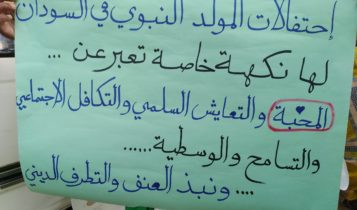 إحتفالات المولد النبوي في السودان
لها نكهة خاصة تعبر عن ...
المحبة والتعايش السلمي والتكافل الاجتماعي
والتسامح والوسطية ......
.... ونبذ العنف والتطرف الديني